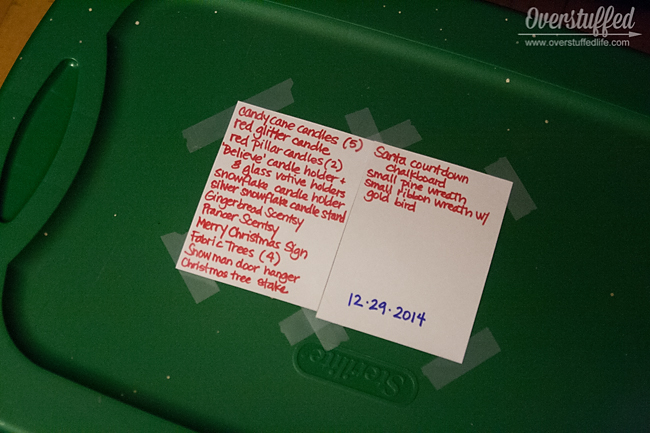 Overstuffed
www.overstuffedlife.com
candy cane candles (5)
red glitter candle
red pillar candles (2)
"Believe" candle holder +
8 glass votive holders
snowflake candle holder
silver snowflake candle stand
Gingerbread Scentsy
Prancer Scentsy
Merry Christmas Sign
Fabric Trees (4)
Snowman door hanger
Christmas tree stake
Santa countdown
chalkboard
small pine wreath
small ribbon wreath w/
gold bird
12·29·2014
Sterilite